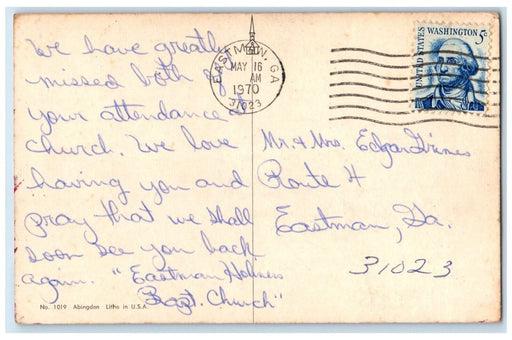 We have greatly
missed both of
your attendance @
church. We love
having you and
pray that we shall
soon see you back
again. "Eastman Holiness
Bapt. Church"
No. 1019 Abingdon Litho in U.S.A.
EASTMAN, GA
MAY 16
AM
1970
31023
UNITED STATES
WASHINGTON 5c
Mr. & Mrs. Edgar Grimes
Route 4
Eastman, Ga.
31023